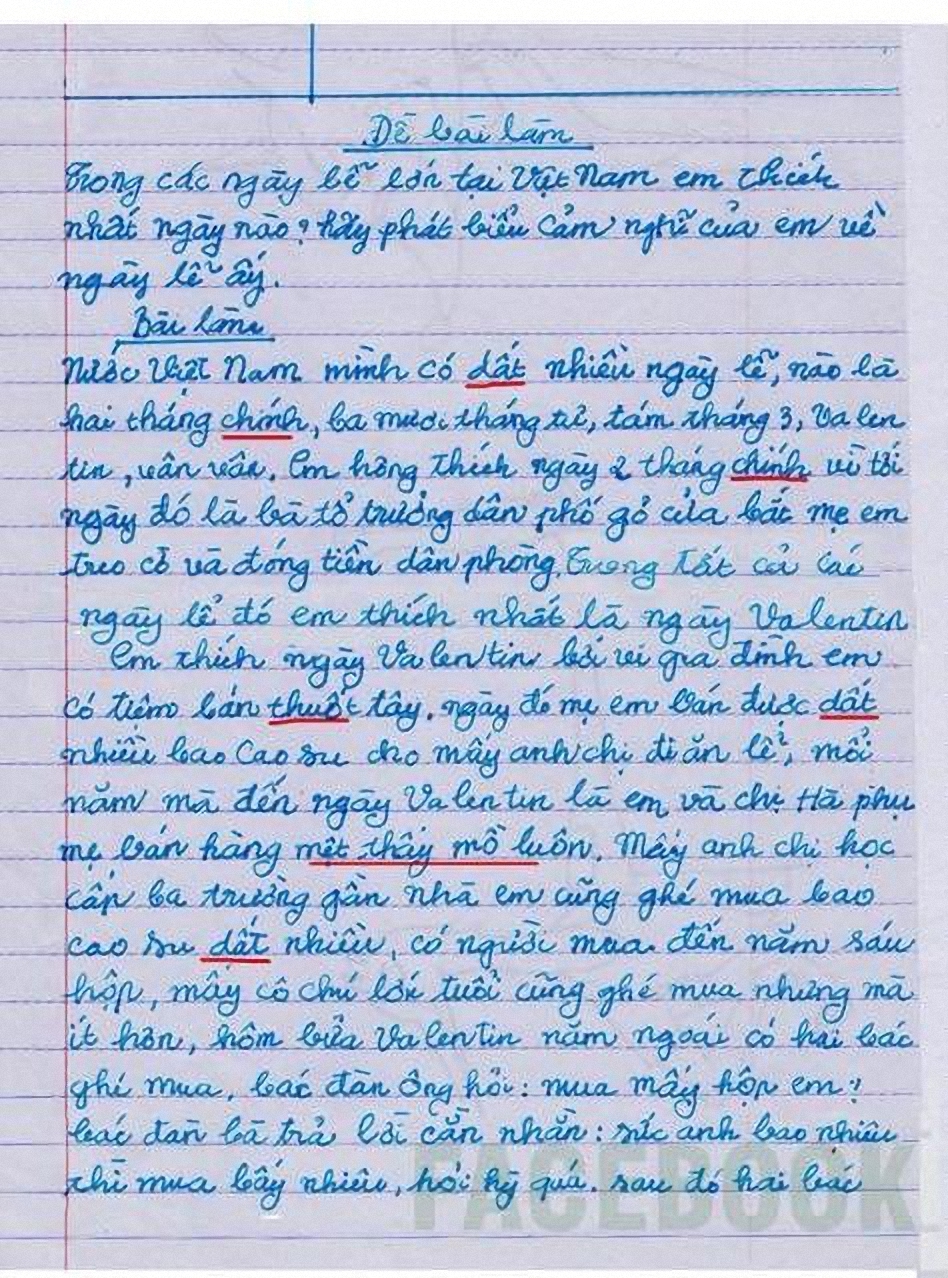 Đề bài làm
Trong các ngày lễ lớn tại Việt Nam em thích
nhất ngày nào? hãy phát biểu cảm nghĩ của em về
ngày lễ ấy.
Bài làm
Nước Việt Nam mình có dất nhiều ngày lễ, nào là
hai tháng chính, ba mươi tháng tư, tám tháng 3, Va len
tin, vân vân. Em hông thích ngày 2 tháng chính vì tới
ngày đó là bà tổ trưởng dân phố gỏ cửa bắt mẹ em
treo cờ và đóng tiền dân phòng. Trong tất cả các
ngày lể đó em thích nhất là ngày Valentin
Em thích ngày Valentin bởi vì gia đình em
có tiệm bán thuột tây. ngày đó mẹ em bán được dất
nhiều bao cao su cho mấy anh chị đi ăn lể, mổi
năm mà đến ngày Valentin là em và chị Hà phụ
mẹ bán hàng mệt thấy mồ luôn. Mấy anh chị học
cấp ba trường gần nhà em cũng ghé mua bao
cao su dất nhiều, có người mua đến năm sáu
hộp, mấy cô chú lớn tuổi cũng ghé mua nhưng mà
ít hơn, hôm bửa Valentin năm ngoái có hai bác
ghé mua, bác đàn ông hỏi: mua mấy hộp em?
bác đàn bà trả lời cằn nhằn: sức anh bao nhiêu
thì mua bấy nhiêu, hỏi kỳ quá. sau đó hai bác
FACEBOOK